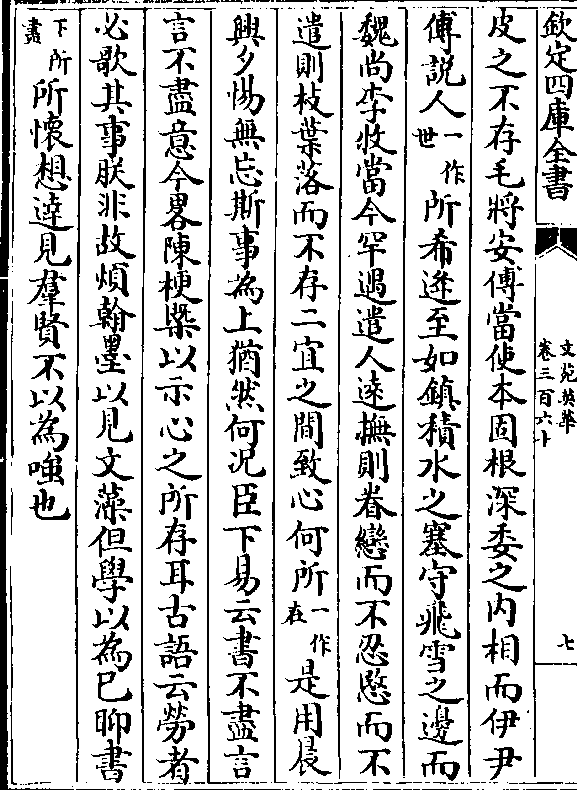 欽定四庫全書
文苑英華
卷三百六十
七
皮之不存毛將安傅當使本固根深委之内相而伊尹
傅説人一作世所希逢至如鎮積水之塞守飛雪之邊而
魏尚李牧當今罕遇遣人逺撫則眷戀而不忍愍而不
遣則枝葉落而不存二宜之間致心何所一作在是用晨
興夕惕無忘斯事為上猶然何况臣下易云書不盡言
言不盡意今畧陳梗槩以示心之所存耳古語云勞者
必歌其事朕非故煩翰墨以見文藻但學以為已聊書
下所盡所懷想達見羣賢不以為嗤也